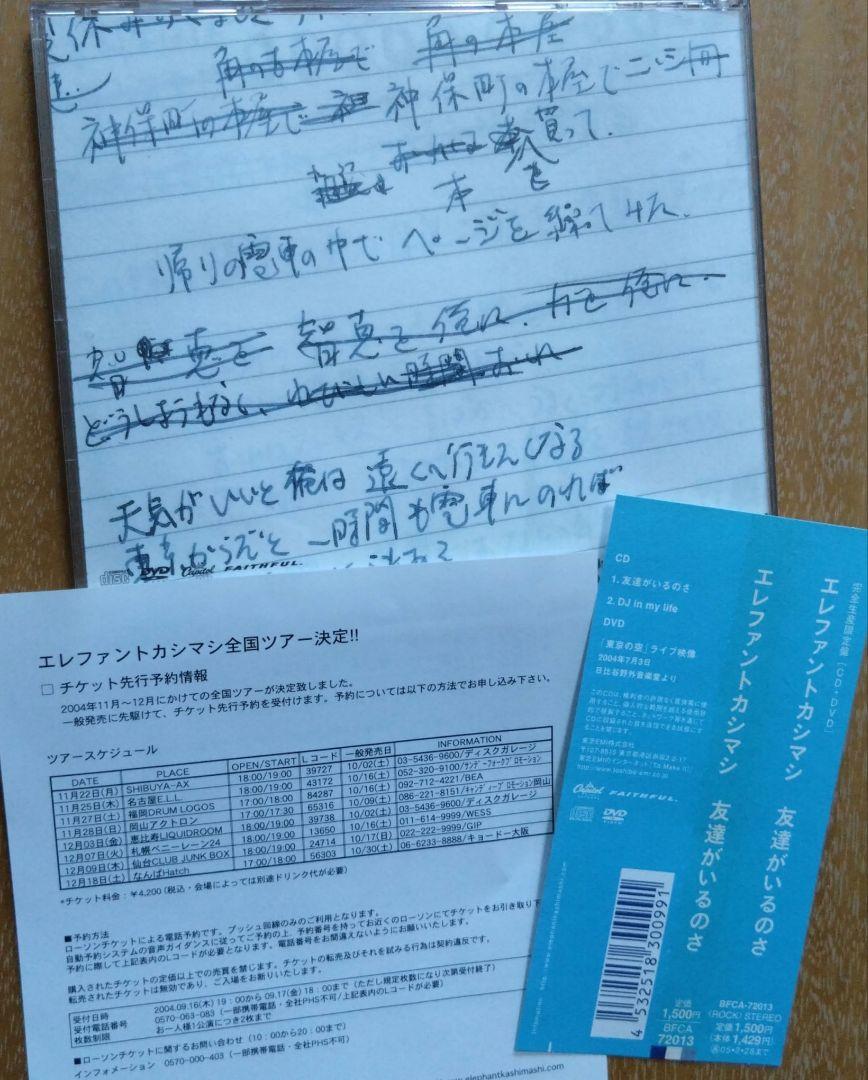 角の本屋で 角の本屋
神保町の本屋で 神保町の本屋で二、三冊
買って、
本を
帰りの電車の中で ページを繰ってみた。
智恵を 力を 俺に
どうしようもなく、 時間
天気がいいと俺は遠くへ行きたくなる
一時間も電車にのれば
disc DVD Capitol FAITHFUL.
エレファントカシマシ全国ツアー決定!!
□ チケット先行予約情報
2004年11月〜12月にかけての全国ツアーが決定致しました。
一般発売に先駆けて、チケット先行予約を受付けます。予約については以下の方法でお申し込み下さい。
ツアースケジュール
DATE PLACE OPEN/START Lコード 一般発売日 INFORMATION
11月22日(月) SHIBUYA-AX 18:00/19:00 39727 10/02(土) 03-5436-9600/ディスクガレージ
11月25日(木) 名古屋E.L.L. 18:00/19:00 43172 10/16(土) 052-320-9100/サンデーフォークプロモーション
11月27日(土) 福岡DRUM LOGOS 17:00/18:00 84287 10/16(土) 092-712-4221/BEA
11月28日(日) 岡山アクトロン 17:00/17:30 65316 10/09(土) 086-221-8151/キャンディープロモーション岡山
12月03日(金) 恵比寿LIQUIDROOM 18:00/19:00 39738 10/02(土) 03-5436-9600/ディスクガレージ
12月07日(火) 札幌ペニーレーン24 18:00/19:00 13650 10/16(土) 011-614-9999/WESS
12月09日(木) 仙台CLUB JUNK BOX 18:00/19:00 24714 10/17(日) 022-222-9999/GIP
12月18日(土) なんばHatch 17:00/18:00 56303 10/30(土) 06-6233-8888/キョードー大阪
*チケット料金:¥4,200(税込・会場によっては別途ドリンク代が必要)
■予約方法
ローソンチケットによる電話予約です。プッシュ回線のみのご利用となります。
自動予約システムの音声ガイダンスに従ってご予約の上、予約番号を持ってお近くのローソンにてチケットをお引き取り下
予約に際して上記表内のLコードが必要となります。電話番号をお間違えないようにお願いいたします。
購入されたチケットの定価以上での売買を禁じます。チケットの転売及びそれを試みる行為は契約違反です。
転売されたチケットは無効であり、ご入場をお断りいたします。
受付日時 2004.09.16(木) 19:00から 09.17(金) 18:00まで(ただし規定枚数になり次第受付終了)
受付電話番号 0570-063-083(一部携帯電話・全社PHS不可/上記表内のLコードが必要)
枚数制限 お一人様1公演につき2枚まで
■ローソンチケットに関するお問い合わせ(10:00から20:00まで)
インフォメーション 0570-000-403(一部携帯電話・全社PHS不可)
www.elephantkashimashi.com
CD
1. 友達がいるのさ
2. DJ in my life
DVD
「東京の空」ライブ映像
2004年7月3日
日比谷野外音楽堂より
東芝EMI株式会社
〒107-8510 東京都港区赤坂2-2-17
http://www.toshiba-emi.co.jp
Capitol FAITHFUL.
disc DVD
エレファントカシマシ 友達がいるのさ
完全生産限定盤[CD+DVD]
エレファントカシマシ 友達がいるのさ
4 532518 300991
定価
1,500円
BFCA
72013
BFCA-72013
(ROCK) STEREO
定価1,500円
(本体1,429円)
05・3・28まで